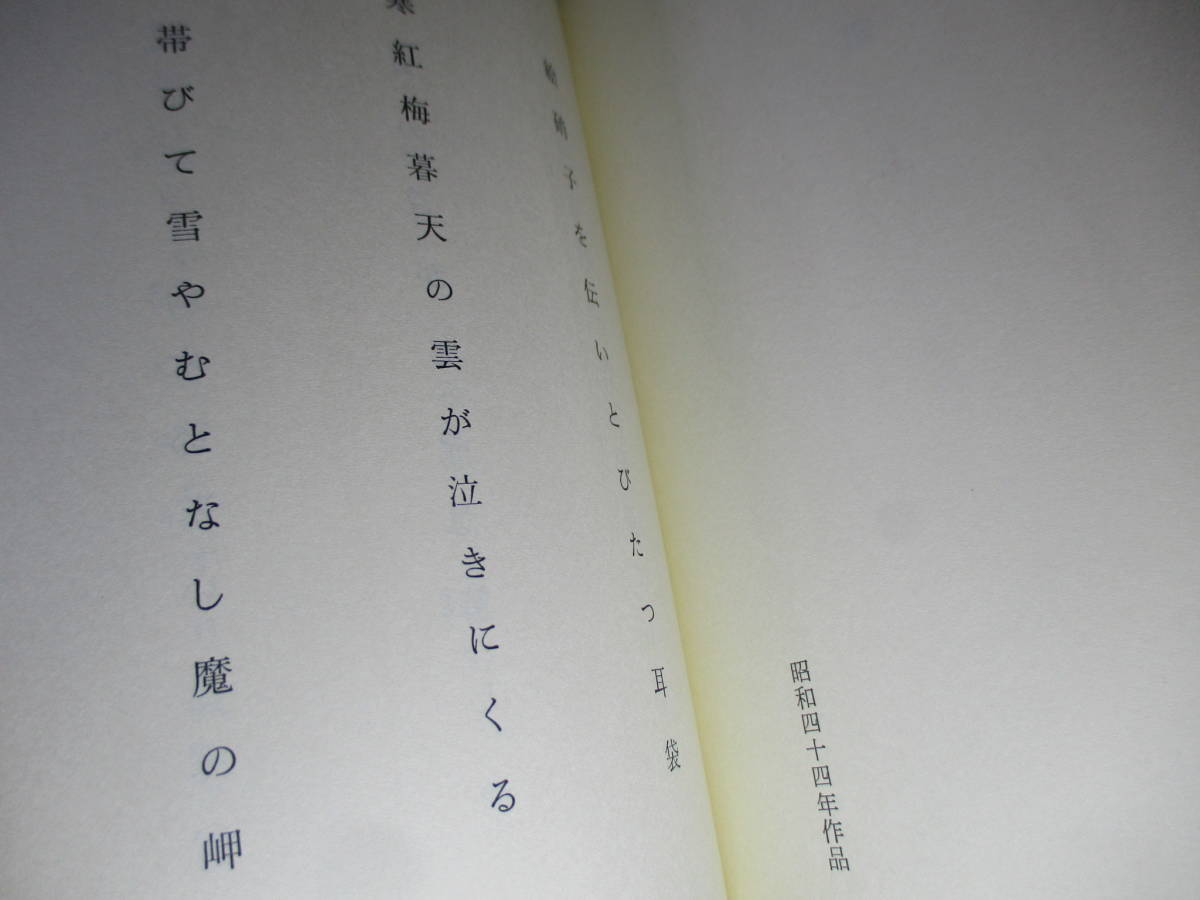 昭和四十四年作品
硝子を伝いとびたつ耳袋
寒紅梅暮天の雲が泣きにくる
帯びて雪やむとなし魔の岬